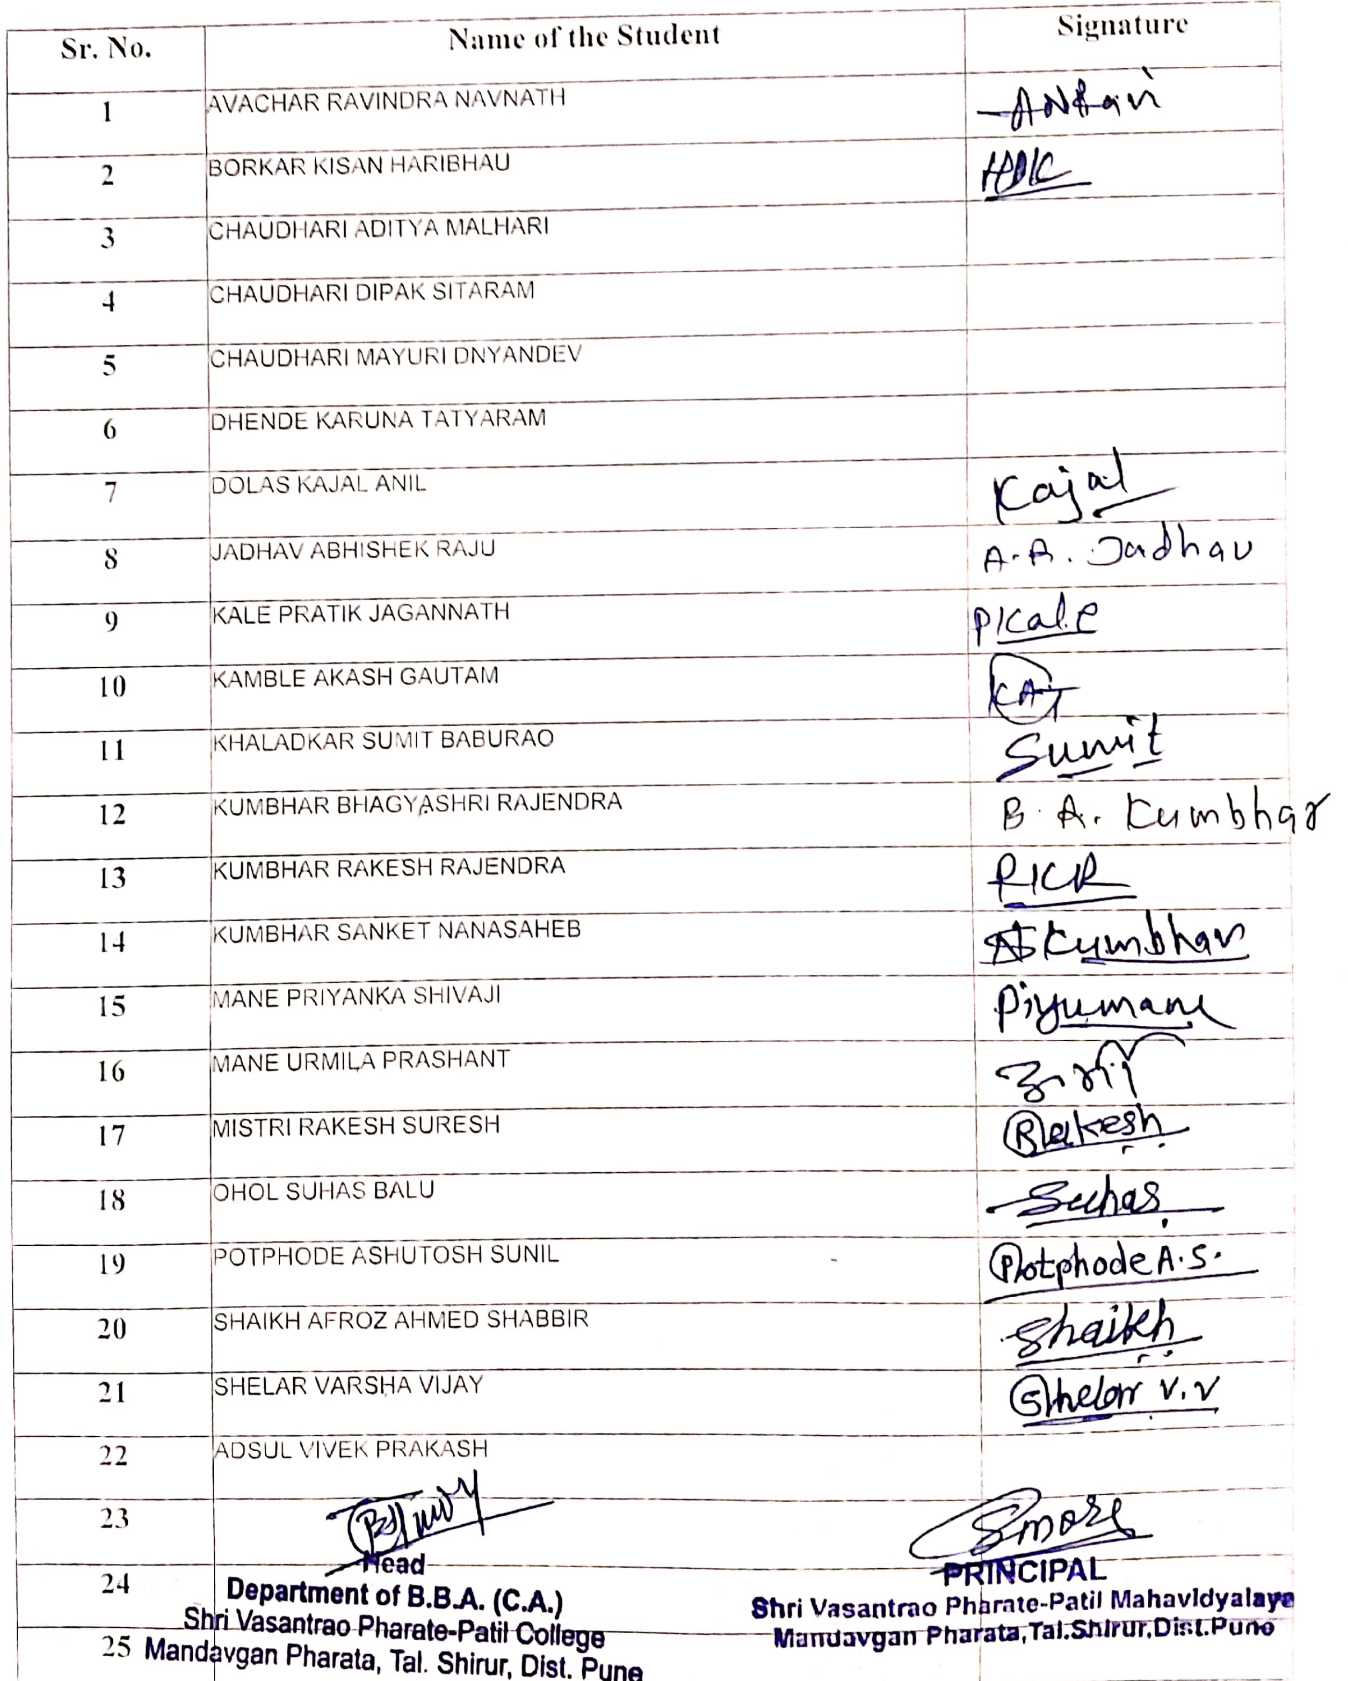 Sr. No. Name of the Student Signature
1 AVACHAR RAVINDRA NAVNATH
2 BORKAR KISAN HARIBHAU
3 CHAUDHARI ADITYA MALHARI
4 CHAUDHARI DIPAK SITARAM
5 CHAUDHARI MAYURI DNYANDEV
6 DHENDE KARUNA TATYARAM
7 DOLAS KAJAL ANIL Kajal
8 JADHAV ABHISHEK RAJU A.R. Jadhav
9 KALE PRATIK JAGANNATH PKale
10 KAMBLE AKASH GAUTAM
11 KHALADKAR SUMIT BABURAO Sumit
12 KUMBHAR BHAGYASHRI RAJENDRA B. R. Kumbhar
13 KUMBHAR RAKESH RAJENDRA RKR
14 KUMBHAR SANKET NANASAHEB Kumbhar
15 MANE PRIYANKA SHIVAJI Piyumane
16 MANE URMILA PRASHANT
17 MISTRI RAKESH SURESH Rakesh
18 OHOL SUHAS BALU Suhas
19 POTPHODE ASHUTOSH SUNIL Potphode A.S.
20 SHAIKH AFROZ AHMED SHABBIR Shaikh
21 SHELAR VARSHA VIJAY Shelar V.V
22 ADSUL VIVEK PRAKASH
23
24
25
Head
Department of B.B.A. (C.A.)
Shri Vasantrao Pharate-Patil College
Mandavgan Pharata, Tal. Shirur, Dist. Pune
PRINCIPAL
Shri Vasantrao Pharate-Patil Mahavidyalaya
Mandavgan Pharata,Tal.Shirur,Dist.Pune